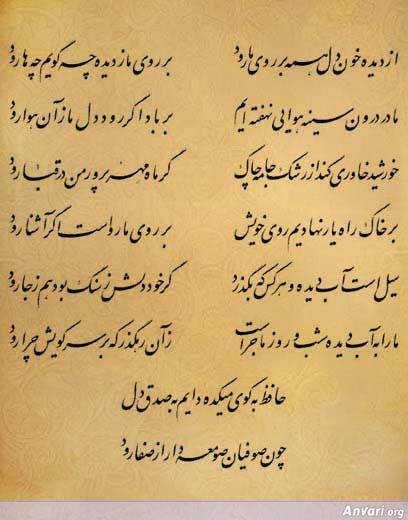 از دیده خون دل همه بر روی ما رود بر روی ما ز دیده چه گویم چه ها رود
ما در درون سینه هوایی نهفته ایم بر باد اگر رود دل ما زآن هوا رود
خورشید خاوری کند از رشک جامه چاک گر ماه مهر پرور من در قبا رود
بر خاک راه یار نهادیم روی خویش بر روی ما رواست اگر آشنا رود
سیل است آب دیده و هر کس که بگذرد گر خود دلش ز سنگ بود هم ز جا رود
ما را به آب دیده شب و روز ماجراست زآن رهگذر که بر سر کویش چرا رود
حافظ به کوی میکده دایم به صدق دل
چون صوفیان صومعه دار از صفا رود
Anvari.org